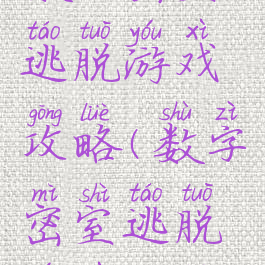 táo tuō yóu xì
逃脱游戏
gōng lüè shù zì
攻略(数字
mì shì táo tuō
密室逃脱